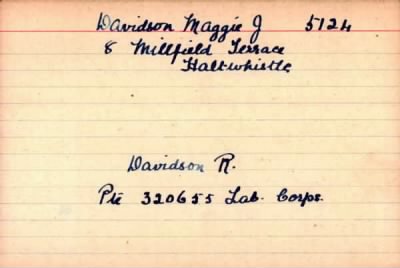 Davidson Maggie J 5124
8 Millfield Terrace
Haltwhistle
Davidson R.
Pte 320655 Lab. Corps.